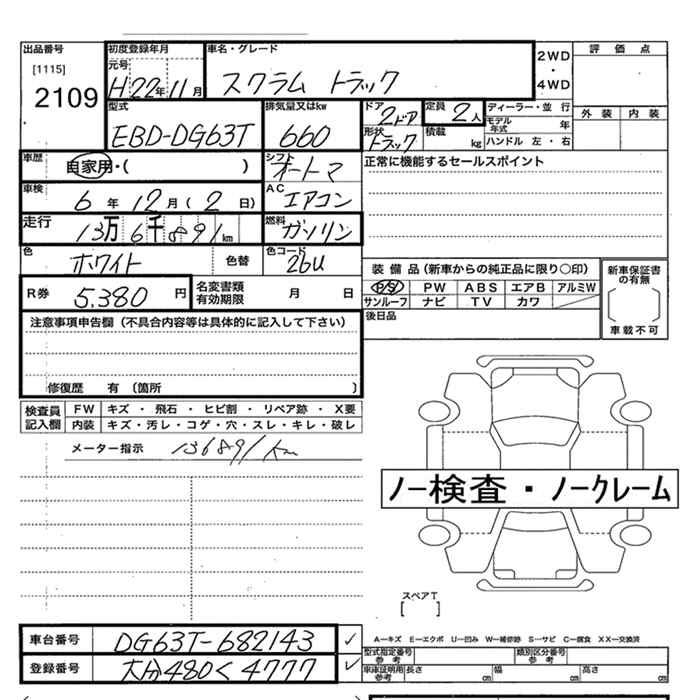 出品番号 初度登録年月 車名・グレード 2WD ・ 4WD 評価点
[1115] 元号
2109 H22年11月 スクラム トラック
外装 内装
型式 排気量又はkw ドア 定員 ディーラー・並行
EBD-DG63T 660 2ドア 2人 モデル年式 年
形状 トラック 積載 kg ハンドル 左・右
車歴 自家用・( ) シフト オートマ 正常に機能するセールスポイント
車検 6年12月(2日) AC エアコン
走行 13万6千891km 燃料 ガソリン
色 ホワイト 色替 色コード 26U
装備品(新車からの純正品に限り○印) 新車保証書の有無
R券 5,380円 名変書類有効期限 月 日 P/S PW ABS エアB アルミW
サンルーフ ナビ TV カワ
車載不可
注意事項申告欄(不具合内容等は具体的に記入して下さい) 後日品
修復歴 有(箇所 )
検査員記入欄 FW キズ・飛石・ヒビ割・リペア跡・X要
内装 キズ・汚レ・コゲ・穴・スレ・キレ・破レ
メーター指示 136891km
ノー検査・ノークレーム
スペアT
[ ]
車台番号 DG63T-682143 ✓
A－キズ E－エクボ U－凹み W－補修跡 S－サビ C－腐食 XX－交換済
登録番号 大分480く4777 ✓
型式指定番号 参考 類別区分番号 参考
車庫証明用 参考 長さ cm 幅 cm 高さ cm